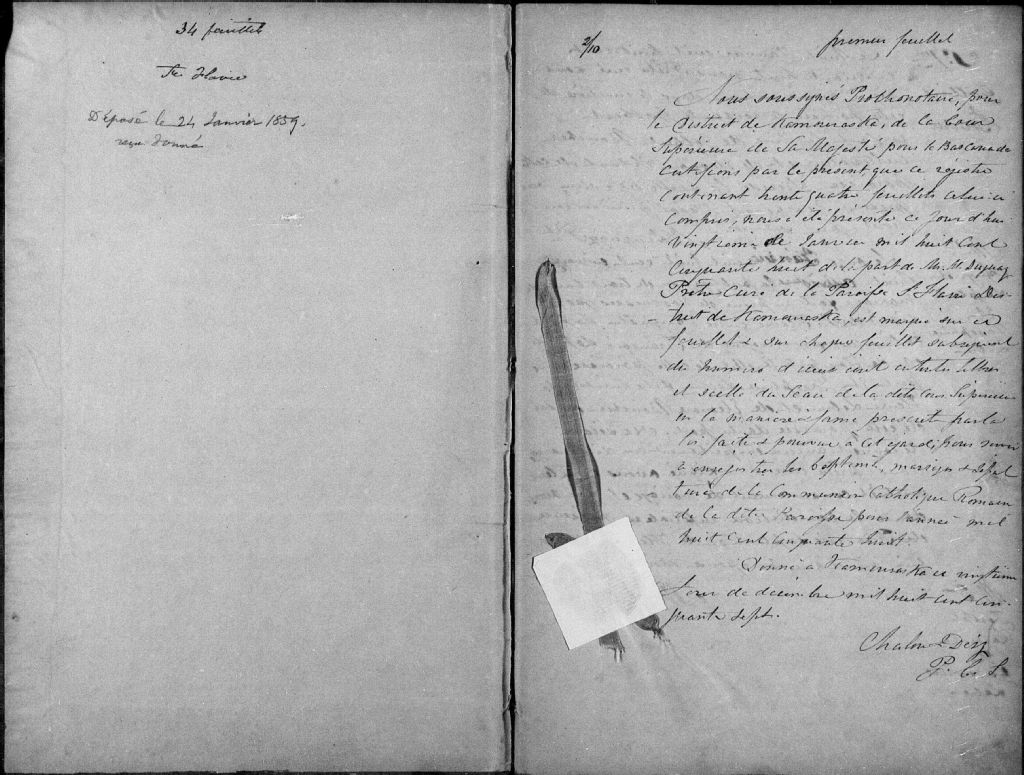 34 feuillets
Ste Flavie
Déposé le 24 Janvier 1859.
2/10
premier feuillet
Nous soussignés Prothonotaire, pour
le District de Kamouraska, de la Cour
Supérieure de Sa Majesté pour le Bas Canada
Certifions par le présent que ce régistre
Contenant trente quatre feuillets celui ci
Compris, nous a été présenté ce jour d'hui
vingtième de Janvier mil huit cent
Cinquante huit de la part de Mr. M. Duguay
Prêtre Curé de la Paroisse S. Flavie Dis-
trict de Kamouraska, est marqué sur ce
feuillet & sur chaque feuillet subséquent
du numéro d'icieux écrit en toutes lettres
et scellé du Sceau de la dite Cour Supérieure
en la manière & forme prescrite par la
loi faite & pourvue à cet égard, pour servir
à enrégistrer les baptêmes, mariages & sépul
tures de la Communion Catholique Romain
de la dite Paroisse pour l'année mil
huit Cent Cinquante huit.
Donné à Kamouraska ce vingtième
Jour de décembre mil huit cent cin-
quante sept.
Chalou & Dess
P. C. S.